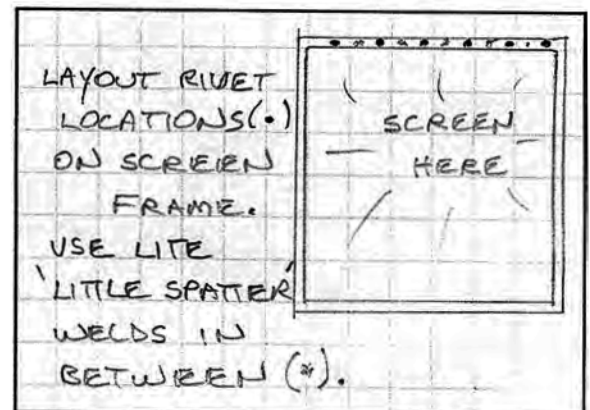 LAYOUT RIVET
LOCATIONS(•)
ON SCREEN
FRAME.
USE LITE
'LITTLE SPATTER'
WELDS IN
BETWEEN (*).
SCREEN
HERE